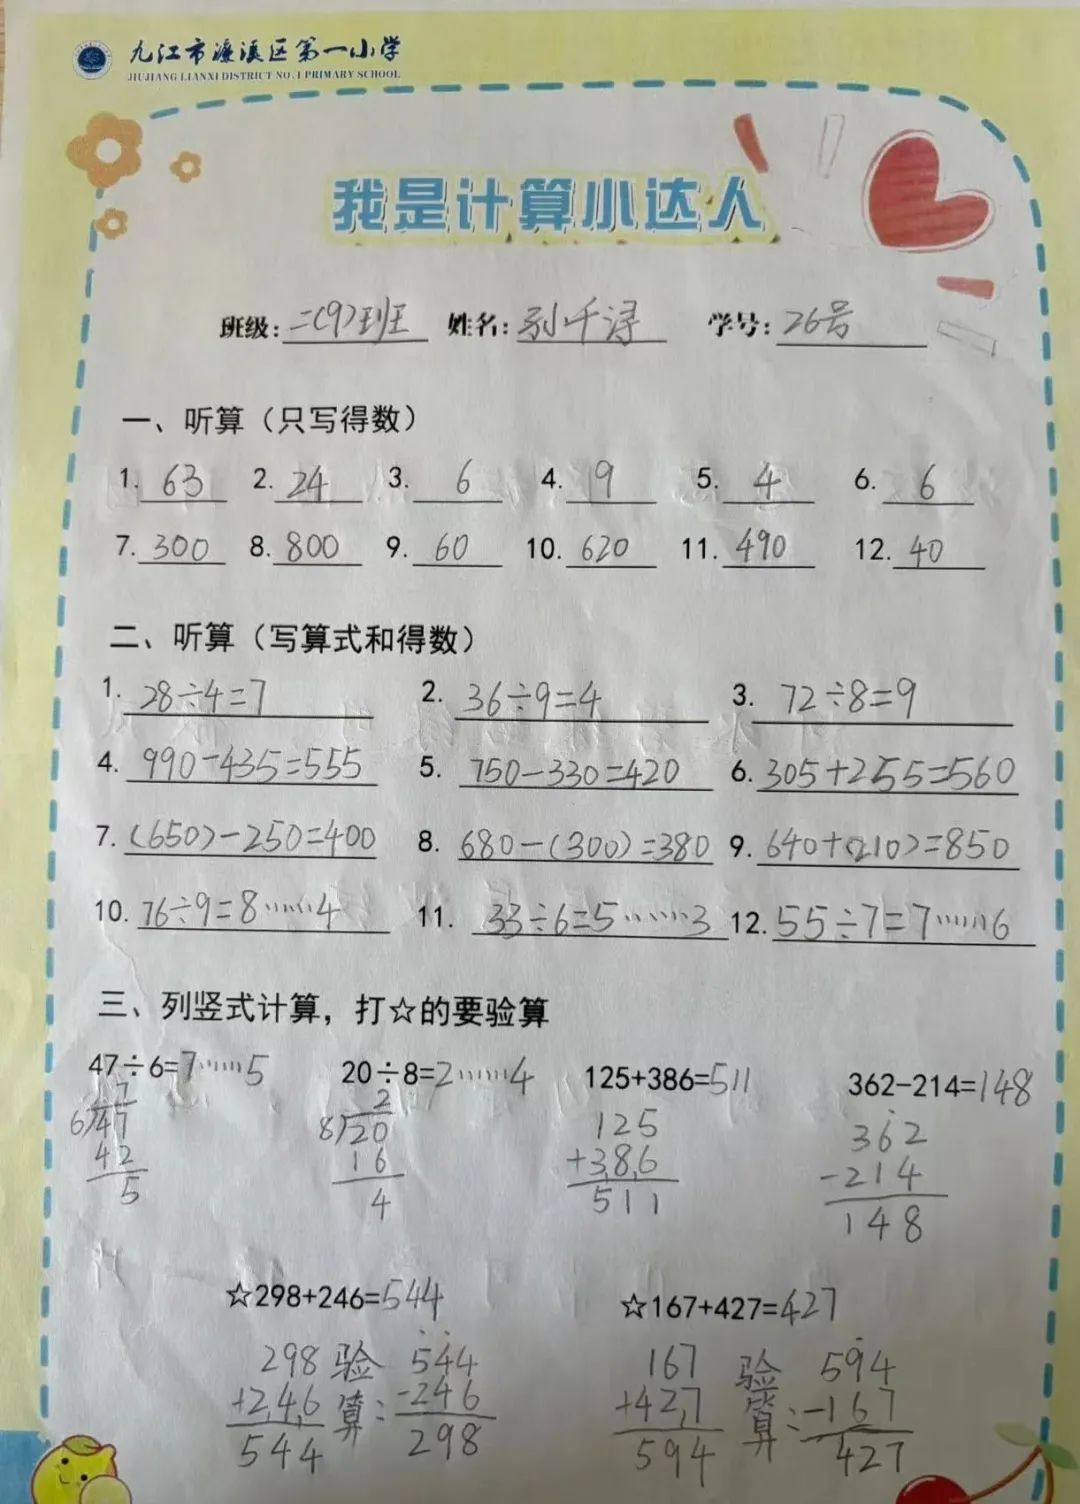 九江市濂溪区第一小学
JIUJIANG LIANXI DISTRICT NO.1 PRIMARY SCHOOL
我是计算小达人
班级:二(9)班 姓名: 千浔 学号:26号
一、听算（只写得数）
1. 63 2. 24 3. 6 4. 9 5. 4 6. 6
7. 300 8. 800 9. 60 10. 620 11. 490 12. 40
二、听算（写算式和得数）
1. 28÷4=7 2. 36÷9=4 3. 72÷8=9
4. 990-435=555 5. 750-330=420 6. 305+255=560
7. (650)-250=400 8. 680-(300)=380 9. 640+(210)=850
10. 76÷9=8……4 11. 33÷6=5……3 12. 55÷7=7……6
三、列竖式计算，打☆的要验算
47÷6=7……5 20÷8=2……4 125+386=511 362-214=148
7 2 125 362
6)47 8)20 +386 -214
42 16 511 148
5 4
☆298+246=544 ☆167+427=427
298 验 544 167 验 594
+246 算: -246 +427 算: -167
544 298 594 427